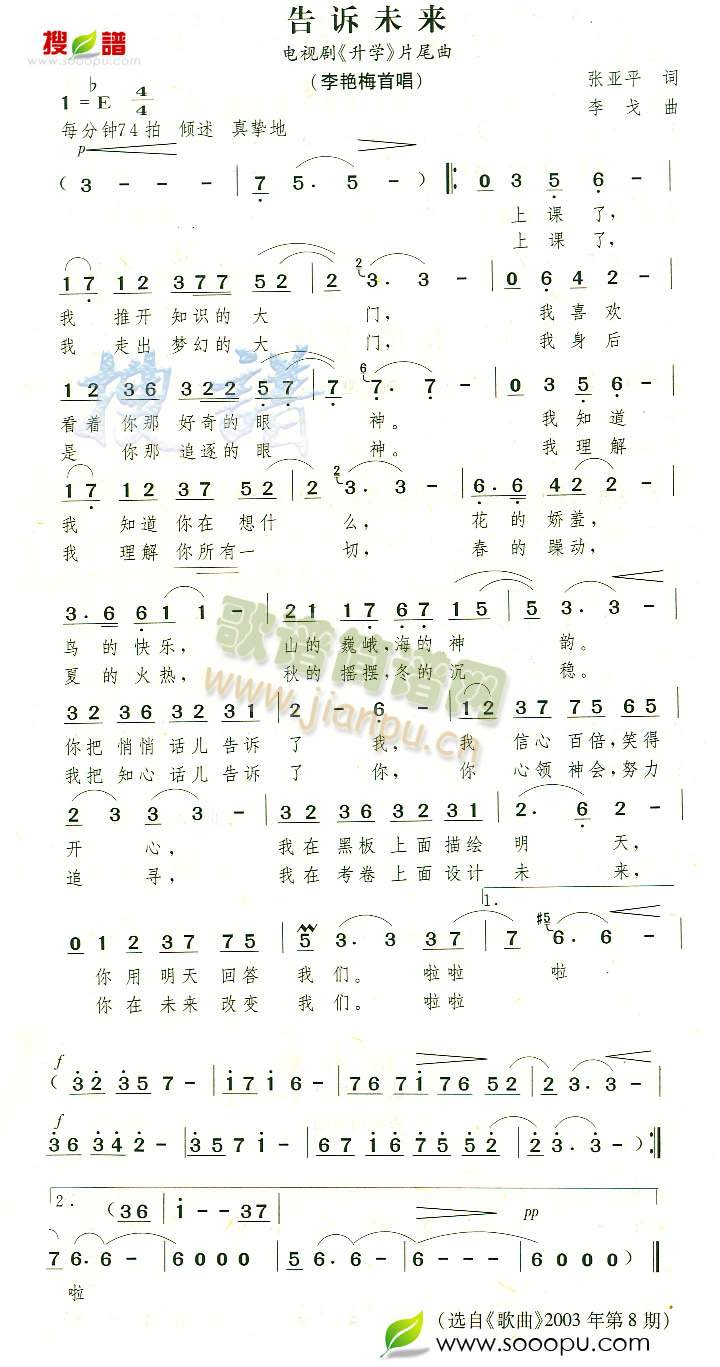 告诉未来
搜谱
www.sooopu.com
电视剧《升学》片尾曲
(李艳梅首唱)
张亚平 词
1=♭E 4/4
李 戈 曲
每分钟74拍 倾述 真挚地
p
( 3 - - - | 7 5. 5 - ) ‖: 0 3 5 6 - |
上 课 了,
上 课 了,
17 12 377 52 | 2 3. 3 - | 0 6 4 2 - |
我 推开 知识的 大 门, 我 喜 欢
我 走出 梦幻的 大 门, 我 身 后
12 36 322 57 | 7 7. 7 - | 0 3 5 6 - |
看着 你那 好奇的 眼 神。 我 知 道
是 你那 追逐的 眼 神。 我 理 解
17 12 37 52 | 2 3. 3 - | 6.6 42 2 - |
我 知道 你在 想什 么, 花的 娇羞,
我 理解 你所有一 切, 春的 躁动,
3. 6 6 1 1 - | 21 17 67 15 | 5 3. 3 - |
鸟 的 快 乐, 山的 巍峨,海的 神 韵。
夏 的 火 热, 秋的 摇摆,冬的 沉 稳。
歌谱简谱网
www.jianpu.cn
32 36 32 31 | 2 - 6 - | 12 37 75 65 |
你把 悄悄 话儿 告诉 了 我, 我 信心 百倍,笑得
我把 知心 话儿 告诉 了 你, 你 心领 神会,努力
2 3 3 3 - | 32 36 32 31 | 2. 6 2 - |
开 心, 我在 黑板 上面 描绘 明 天,
追 寻, 我在 考卷 上面 设计 未 来,
1.
0 12 37 75 | 5 3. 3 37 | 7 #5 6. 6 - |
你用 明天 回答 我 们。 啦啦 啦
你在 未来 改变 我 们。 啦啦
f
( 32 357 - | 1716 - | 76 71 76 52 | 2 3. 3 - |
f
36 342 - | 3571 - | 67 16 75 52 | 2 3. 3 - ) :‖
2. ( 36 | 1 - - 37 pp
7 6. 6 - | 6 0 0 0 | 5 6. 6 - | 6 0 0 0 ) ‖
啦
(选自《歌曲》2003 年第 8 期)
www.sooopu.com